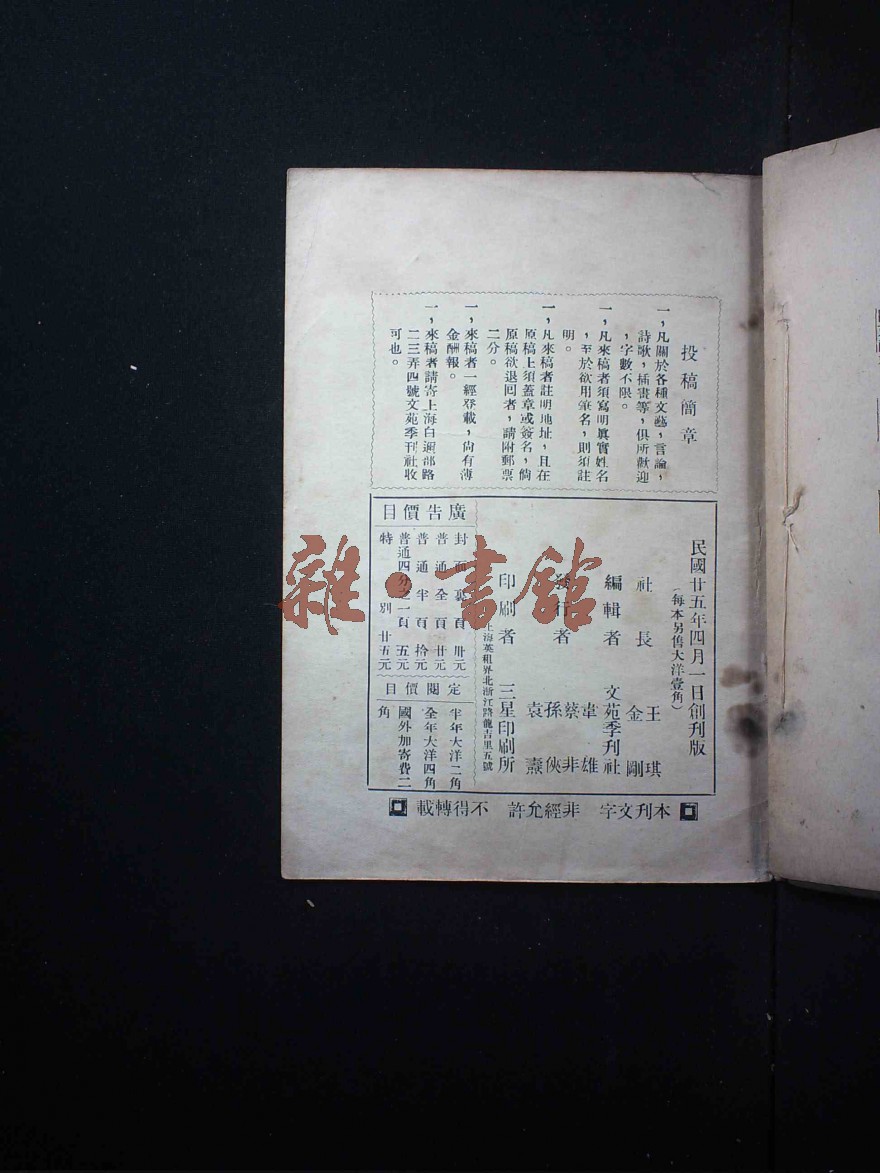 投稿簡章
一，凡關於各種文藝，言論，
詩歌，插畫等，俱所歡迎
，字數不限。
一，凡來稿者須寫明眞實姓名
，至於欲用筆名，則須註
明。
一，凡來稿者註明地址，且在
原稿上須蓋章或簽名，倘
原稿欲退囘者，請附郵票
二分。
一，來稿者一經登載，尙有薄
金酬報。
一，來稿者請寄上海白邇部路
二三弄四號文苑季刊社收
可也。
民國廿五年四月一日創刊版
（每本另售大洋壹角）
社長 王琪
金剛
編輯者 文苑季刊社
發行者 韋雄
蔡非
孫俠
袁燾
印刷者 三星印刷所
上海英租界北浙江路龍吉里五號
廣告價目
封面裏頁 卅元
普通全頁 廿元
普通半頁 拾元
普通四分之一頁 五元
特別 廿五元
定閱價目
半年大洋二角
全年大洋四角
國外加寄費二
角
本刋文字 非經允許 不得轉載
雜·書館